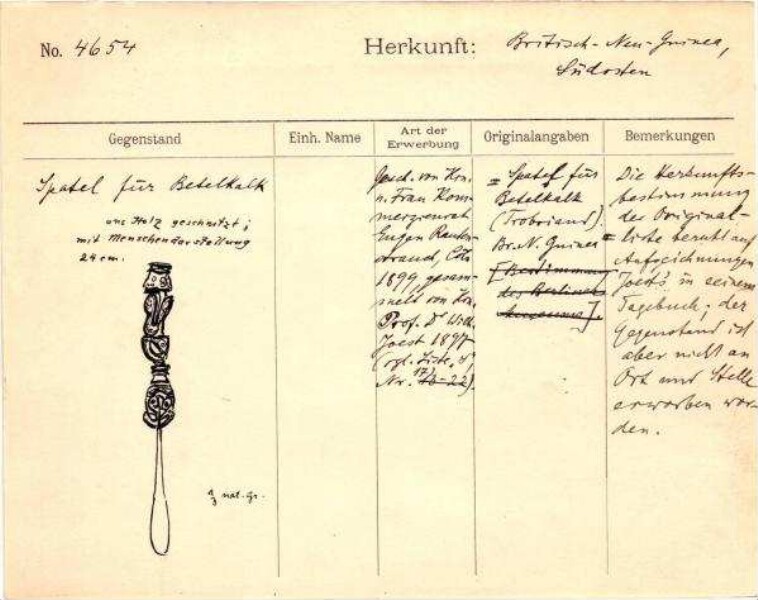 No. 4654
Herkunft: Britisch-Neu-Guinea,
Südosten
Gegenstand
Einh. Name
Art der
Erwerbung
Originalangaben
Bemerkungen
Spatel für Betelkalk
aus Holz geschnitzt;
mit Menschendarstellung
24 cm.
1/3 nat. Gr.
Gesch. von Hrn.
u. Frau Kom-
merzienrat
Eugen Rauten-
strauch, Cöln
1899, gesam-
melt von Hrn.
Prof. Dr Wilh.
Joest 1897
(vgl. Liste,
Nr. 22).
= Spatel für
Betelkalk
(Trobriand).
Br. N. Guinea =
[Bestimmung
des Berliner
Museums].
Die Herkunfts-
bestimmung
der Original-
liste beruht auf
Aufzeichnungen
Joest's in seinem
Tagebuch; der
Gegenstand ist
aber nicht an
Ort und Stelle
erworben wor-
den.